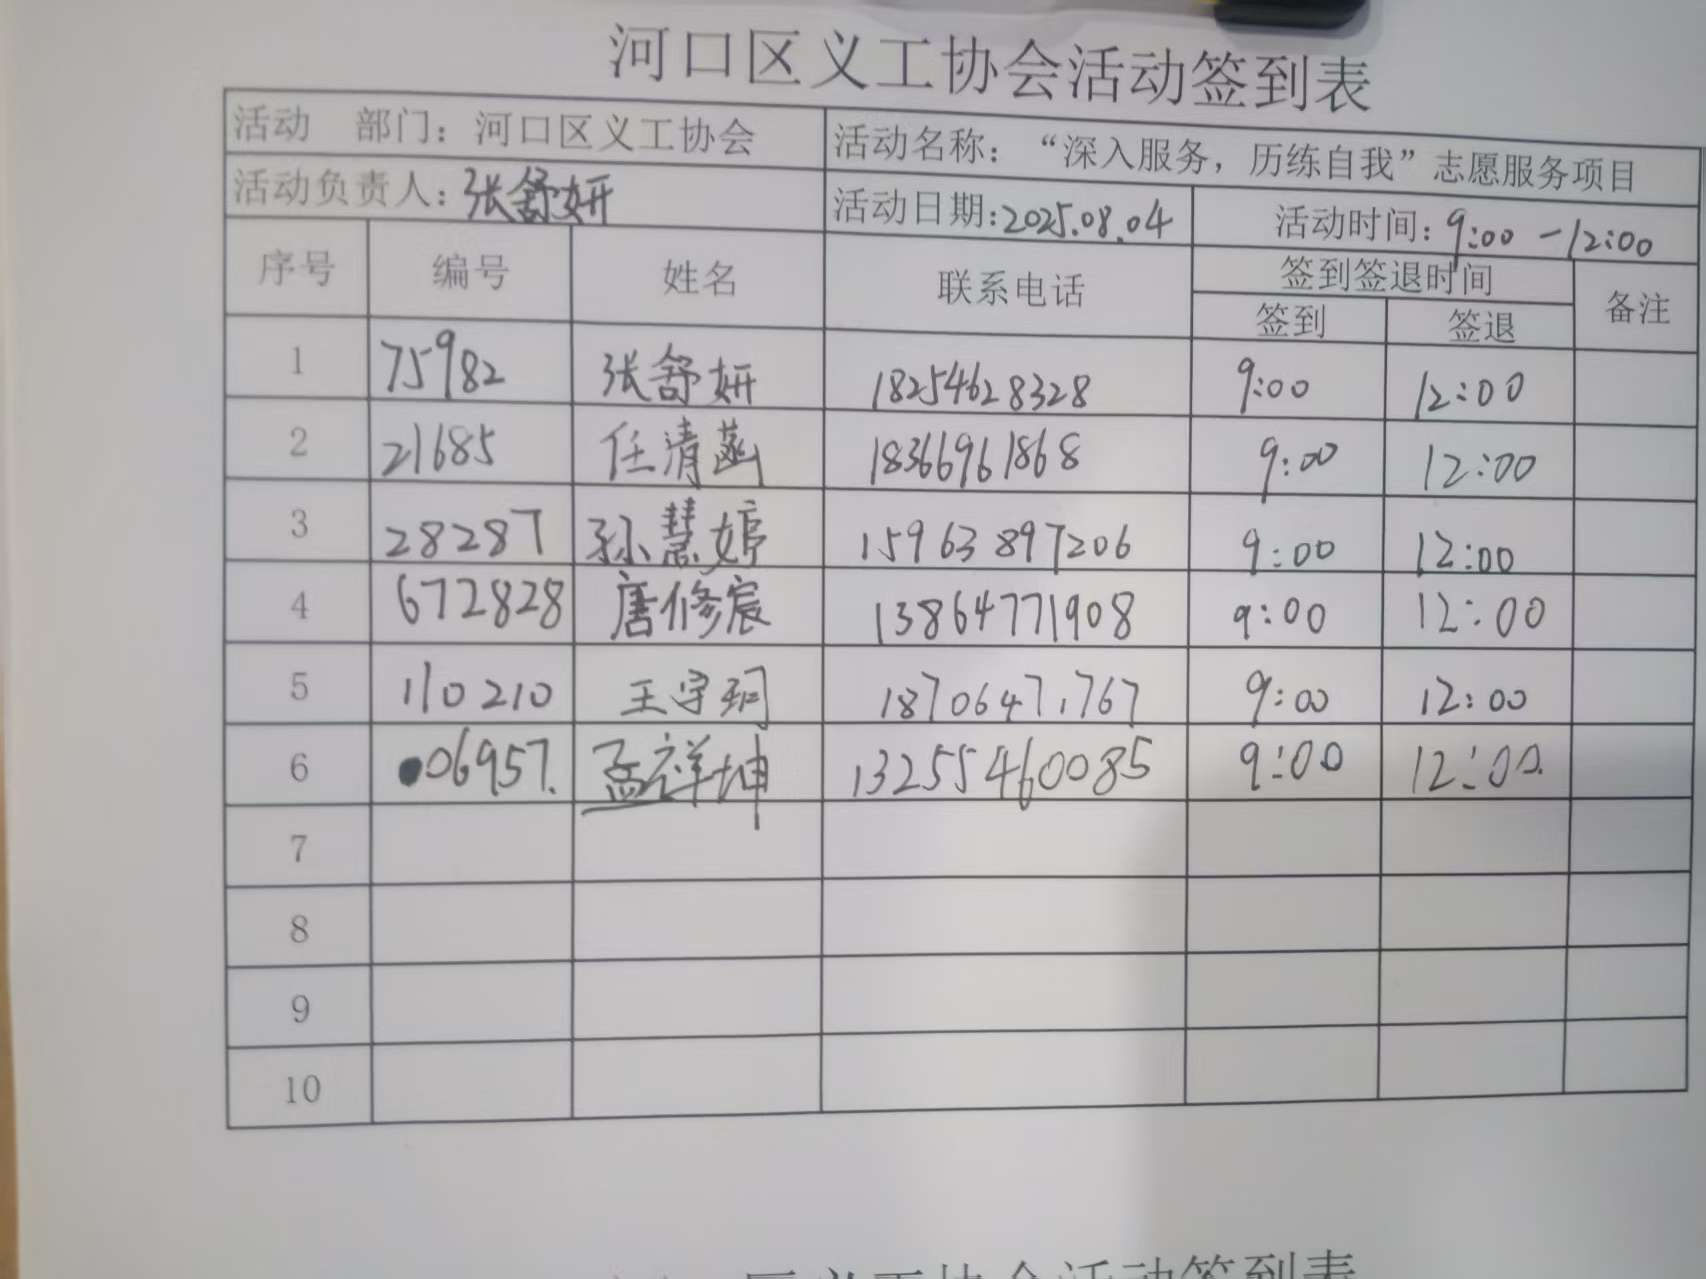 河口区义工协会活动签到表
活动 部门：河口区义工协会 活动名称：“深入服务，历练自我”志愿服务项目
活动负责人：张舒妍 活动日期：2025.08.04 活动时间：9:00-12:00
序号 编号 姓名 联系电话 签到签退时间 备注
签到 签退
1 75982 张舒妍 18254628328 9:00 12:00
2 21685 任清菡 18366961868 9:00 12:00
3 28287 孙慧婷 15963897206 9:00 12:00
4 672828 唐修宸 13864771908 9:00 12:00
5 110210 王宇玥 18706471767 9:00 12:00
6 06957. 孟祥坤 13255460085 9:00 12:00.
7
8
9
10
区义工协会活动签到表